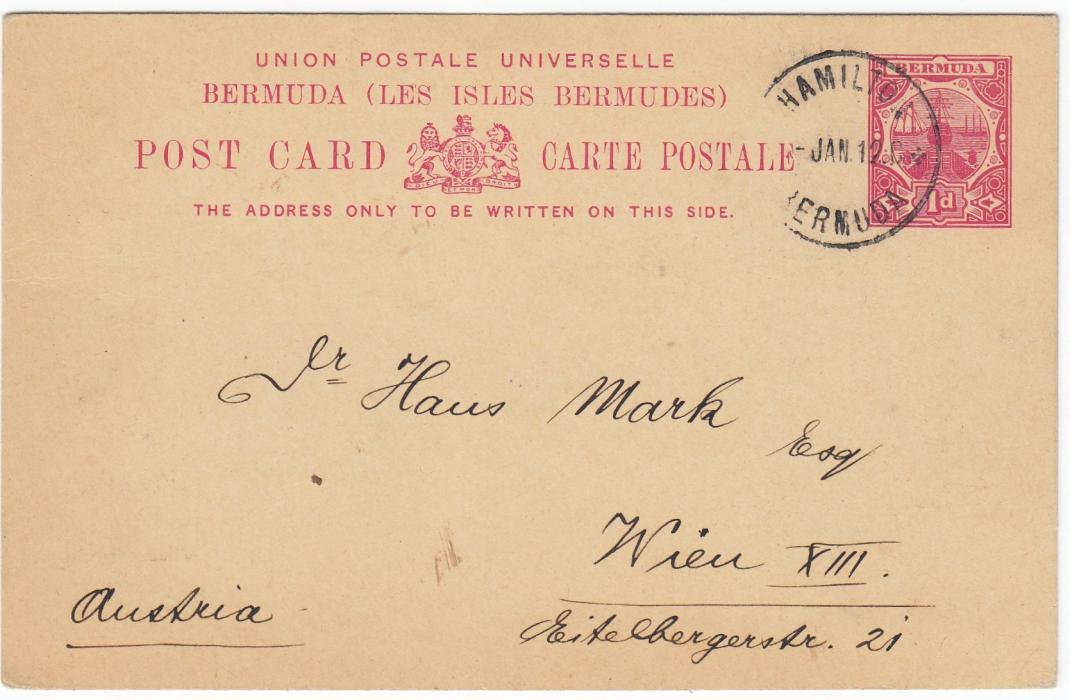 UNION POSTALE UNIVERSELLE
BERMUDA (LES ISLES BERMUDES)
POST CARD CARTE POSTALE
THE ADDRESS ONLY TO BE WRITTEN ON THIS SIDE.
BERMUDA
1d
HAMILTON
JAN. 10
BERMUDA
Dr Hans Mark
Esq
Wien XIII.
Eitelbergerstr. 21
Austria